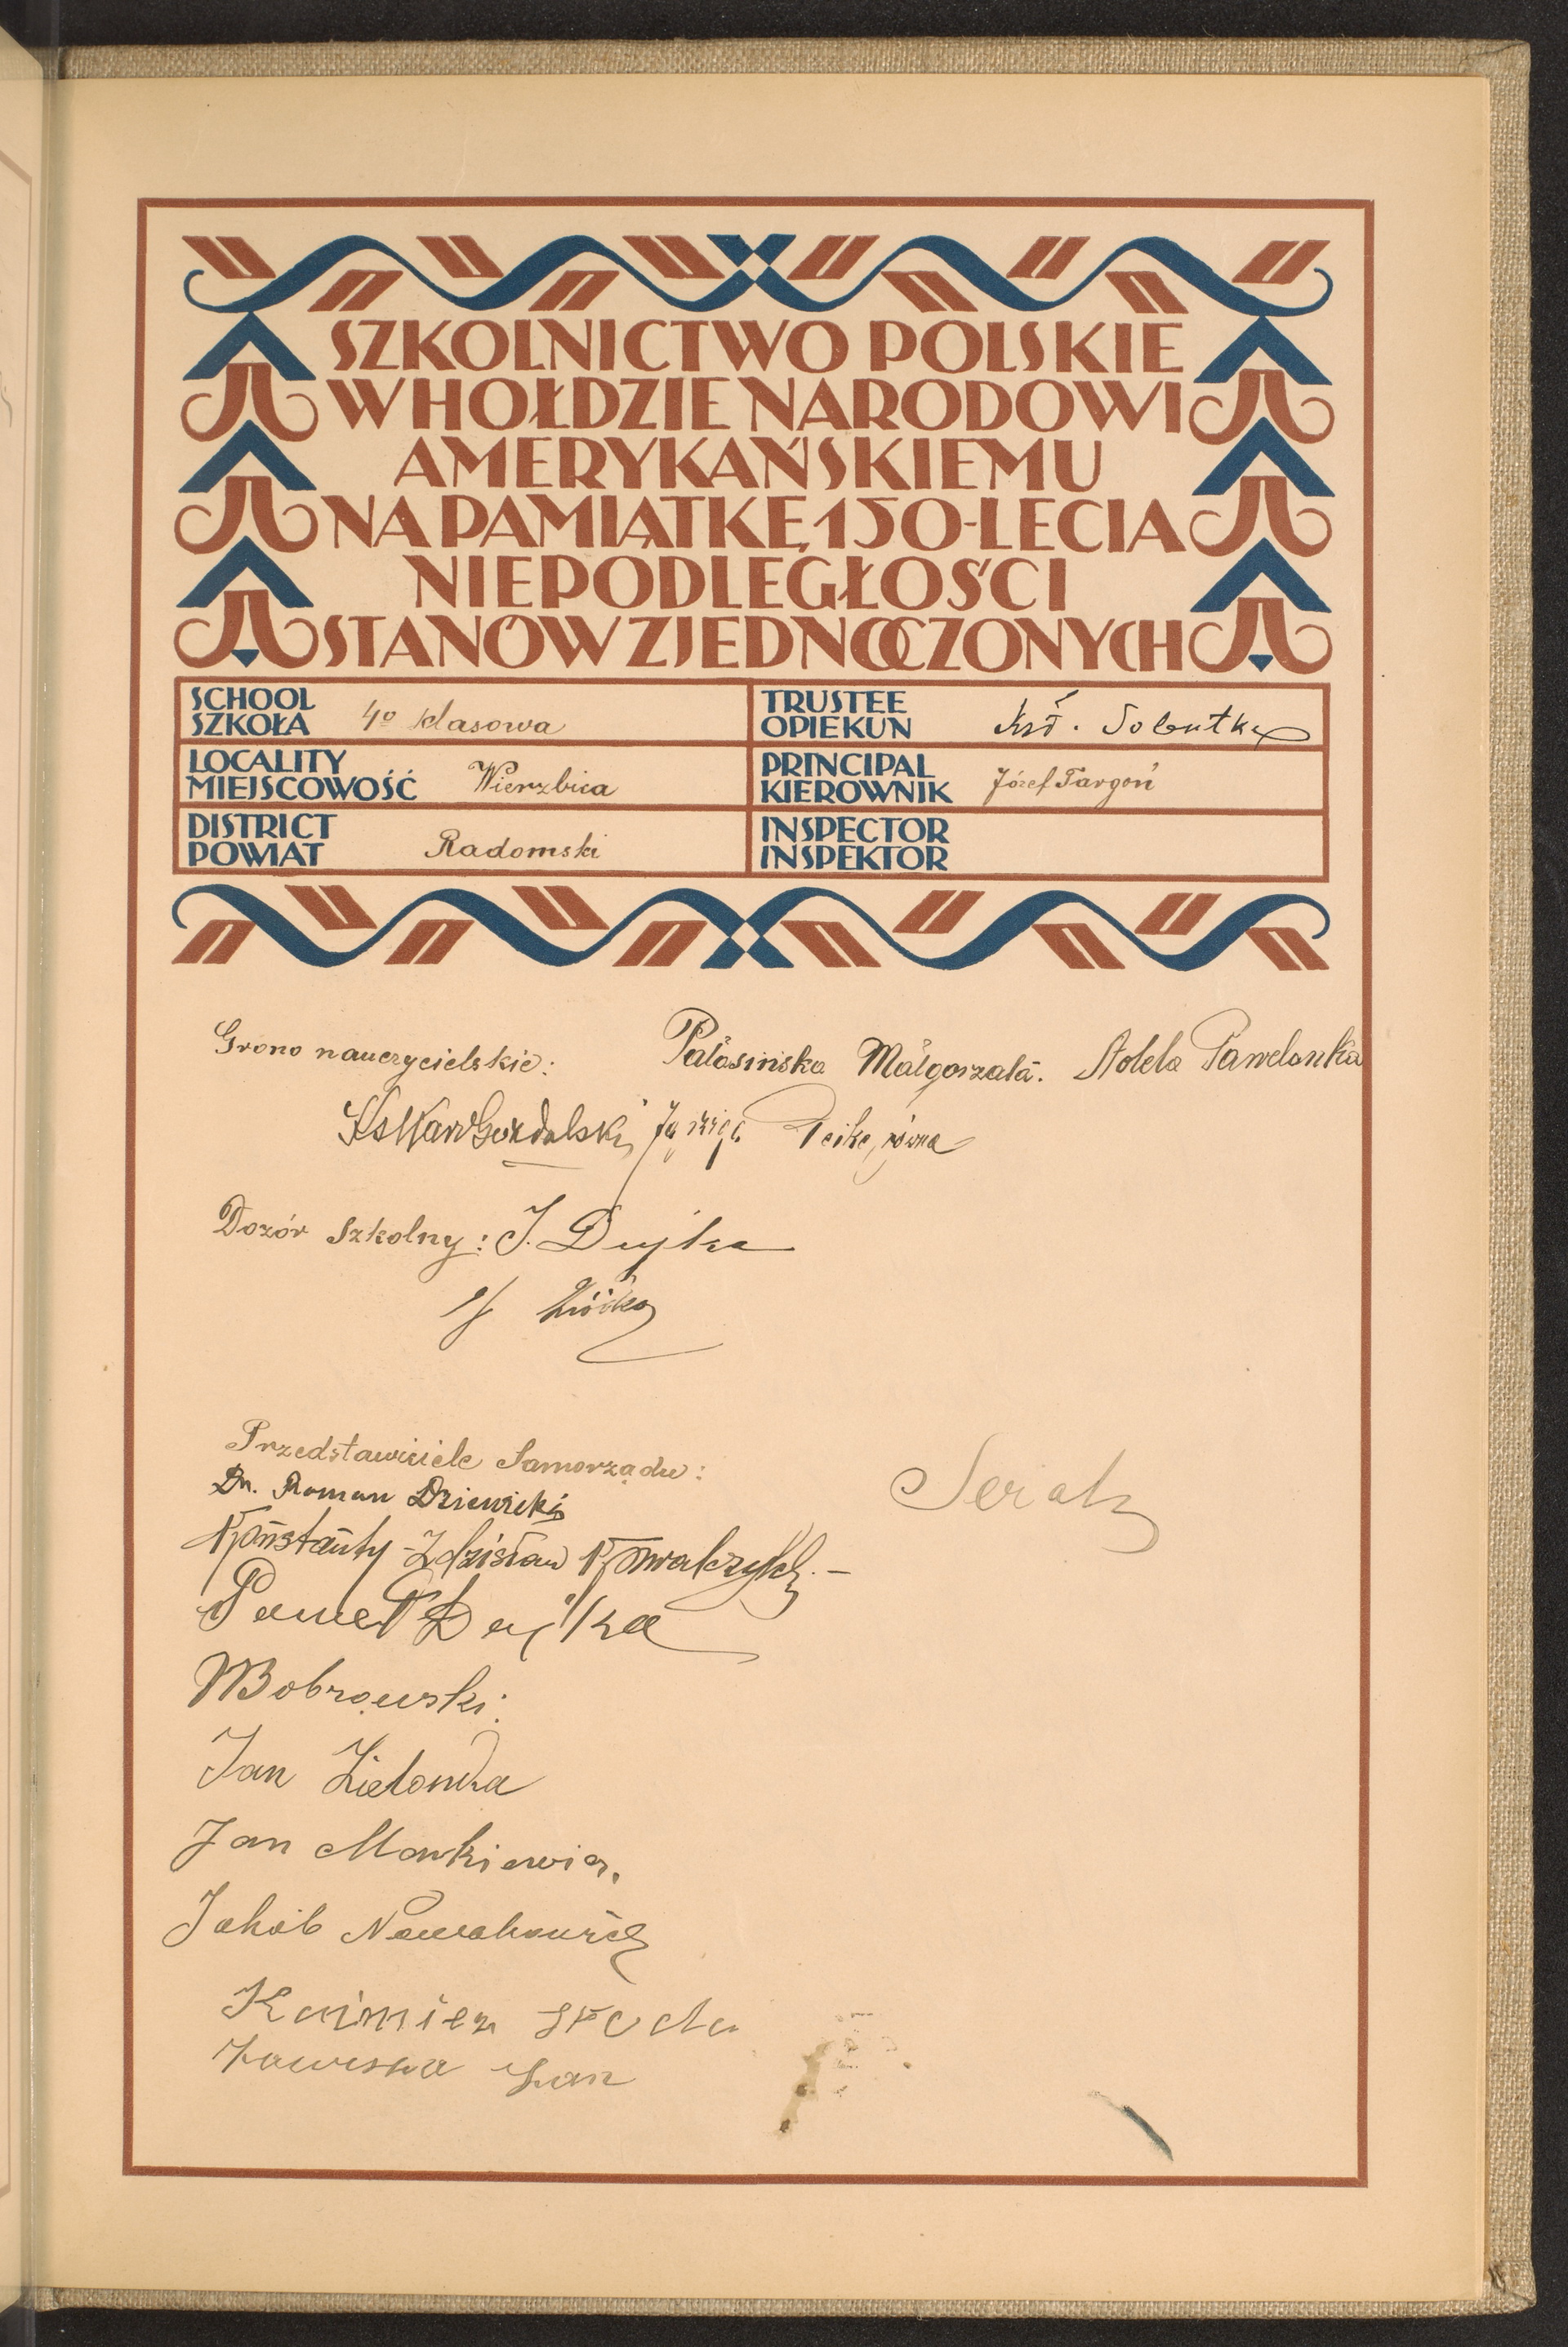 SZKOLNICTWO POLSKIE
W HOŁDZIE NARODOWI
AMERYKAŃSKIEMU
NA PAMIĄTKĘ 150-LECIA
NIEPODLEGŁOŚCI
STANÓW ZJEDNOCZONYCH
SCHOOL
SZKOŁA 4o klasowa
TRUSTEE
OPIEKUN
LOCALITY
MIEJSCOWOŚĆ Wierzbica
PRINCIPAL
KIEROWNIK Józef Targoń
DISTRICT
POWIAT Radomski
INSPECTOR
INSPEKTOR
Grono nauczycielskie: Pałasińska Małgorzata. Adela Pawelonka
Dozór Szkolny: J. Dujka
Przedstawiciele Samorządu:
Dr. Roman Dziewicki
Konstanty-Zdzisław Kowalczyk.-
Paweł Dujka
MBobrowski
Jan Zielonka
Jan Mankiewicz.
Jakób Nowakowicz
Kazimierz
Jan